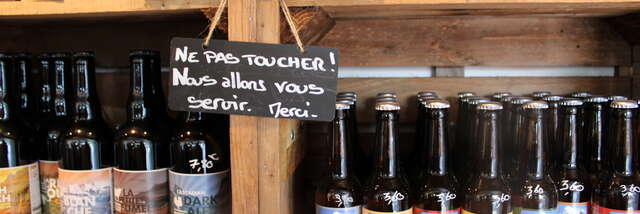 NE PAS TOUCHER!
Nous allons vous
servir. Merci.
7,80€
3,60
3,60
3,60
3,60
3,60
3,60
LA
CASCADIAN
DARK